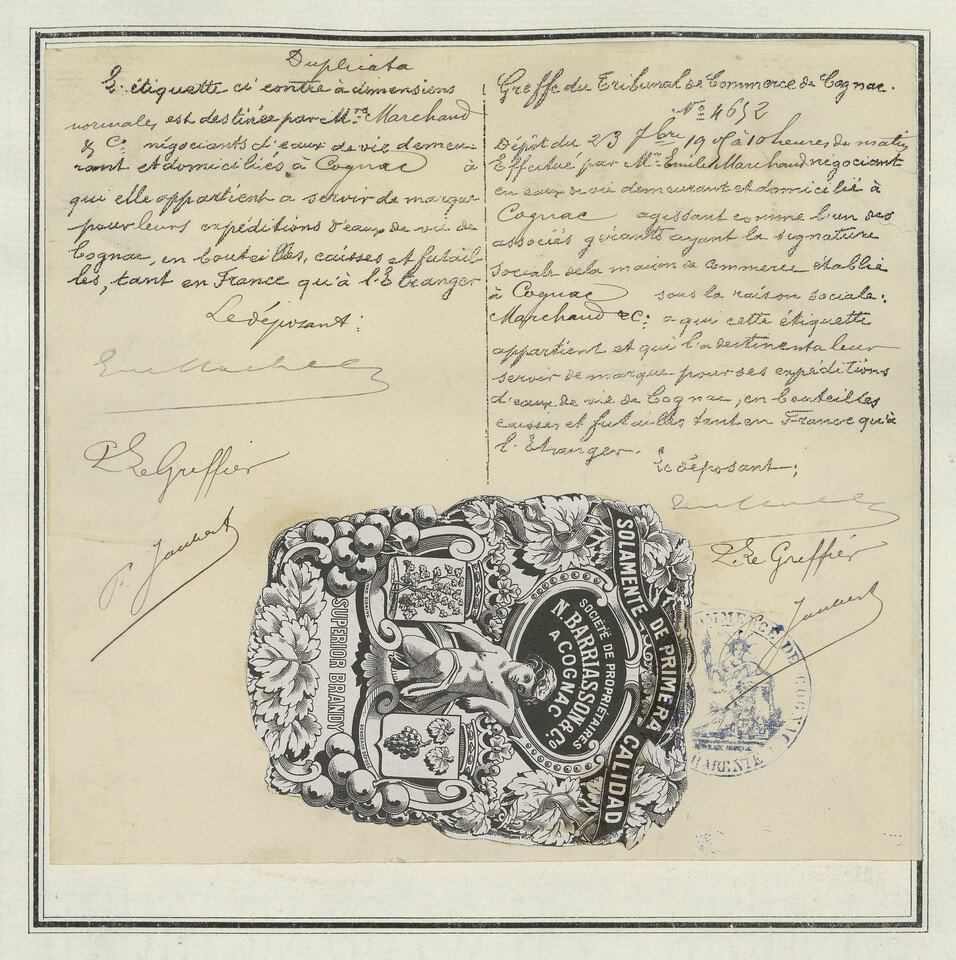 Duplicata
L'étiquette ci contre à dimensions
normales, est destinée par Mrs Marchand
& Co négociants d'eaux de vie demeu-
rant et domiciliés à Cognac à
qui elle appartient a servir de marque
pour leurs expéditions d'eaux de vie de
Cognac, en bouteilles, caisses et futail
les, tant en France qu'à l'Etranger
Le déposant:
P. Le Greffier
Joubert
Greffe du Tribunal de Commerce de Cognac.
No 4652
Dépôt du 23 7bre à 10 heures du matin
Effectué par Mr Emile Marchand négociant
en eaux de vie demeurant et domicilié à
Cognac agissant comme l'un des
associés gérants ayant la signature
sociale de la maison de commerce établie
à Cognac sous la raison sociale:
Marchand & Co a qui cette étiquette
appartient et qui l'a destine a leur
servir de marque pour ses expéditions
d'eaux de vie de Cognac, en bouteilles
caisses et futailles tant en France qu'à
l'Etranger.
Le déposant:
P. Le Greffier
Joubert
SOLAMENTE DE PRIMERA CALIDAD
SOCIÉTÉ DE PROPRIÉTAIRES
N. BARRIASSON & Co
A COGNAC
SUPERIOR BRANDY
COMMERCE DE COGNAC
CHARENTE